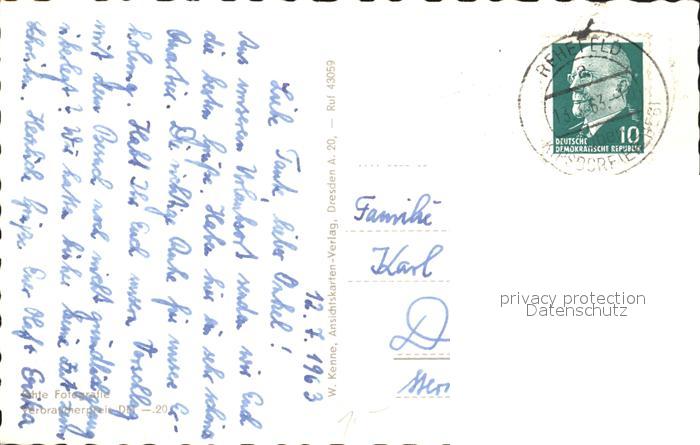 12. 7. 1963
Liebe Tante, lieber Onkel!
Aus unserem Urlaubsort senden wir Euch
die besten Grüße. Haben hier ein sehr schönes
Quartier. Die richtige Ruhe für unsere Er-
holung. Habt Ihr Euch unseren Vorschlag
mit dem Besuch noch nicht gründlich
überlegt? Wir hatten bisher keine Zeit zum
Schreiben. Herzliche Grüße Euer Olaf +
Echte Fotografie
Verbraucherpreis DM —.20
W. Kenne, Ansichtskarten-Verlag, Dresden A. 20, — Ruf 43059
Familie
Karl
D
REHEFELD
DEUTSCHE
DEMOKRATISCHE REPUBLIK
10
privacy protection
Datenschutz